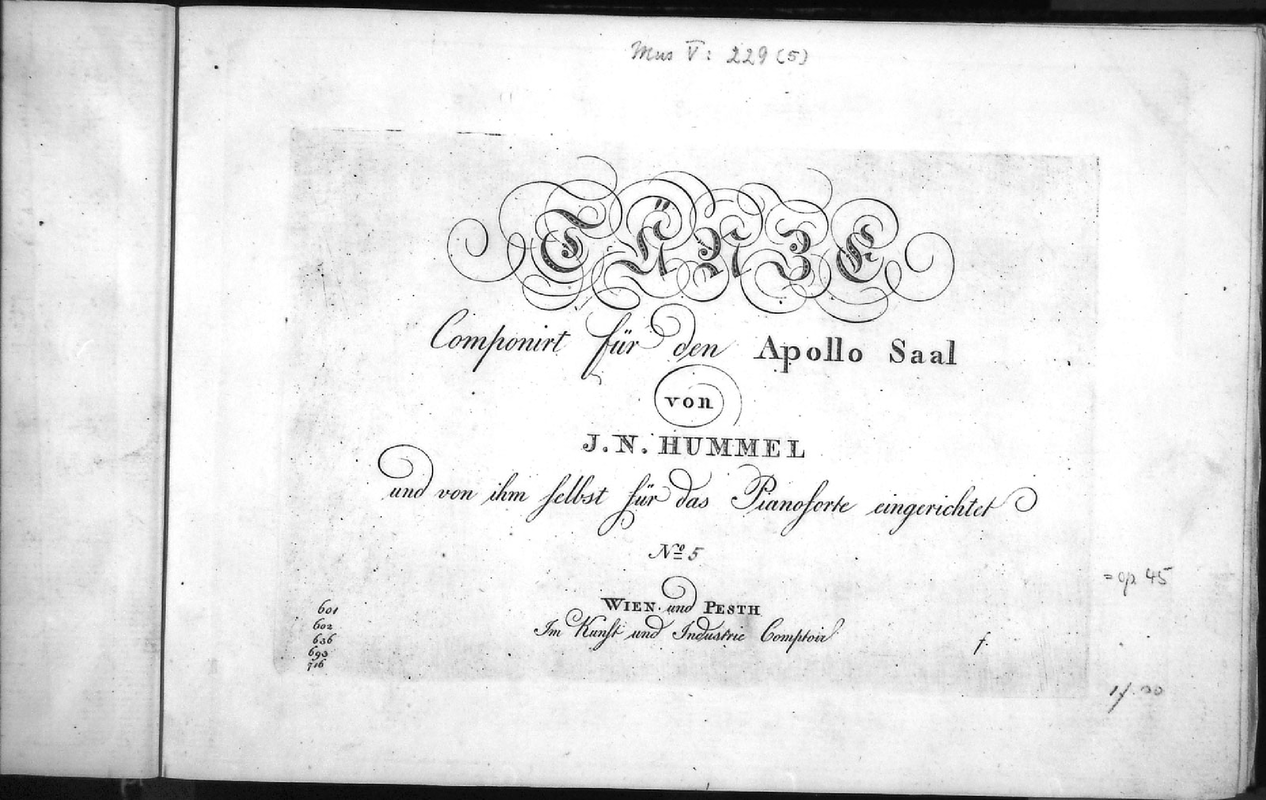 Mus V: 229 (5)
TÄNZE
Componirt für den Apollo Saal
von
J. N. HUMMEL
und von ihm selbst für das Pianoforte eingerichtet
No 5
= op 45
WIEN und PESTH
Im Kunst und Industrie Comptoir
f.
601
602
636
693
716